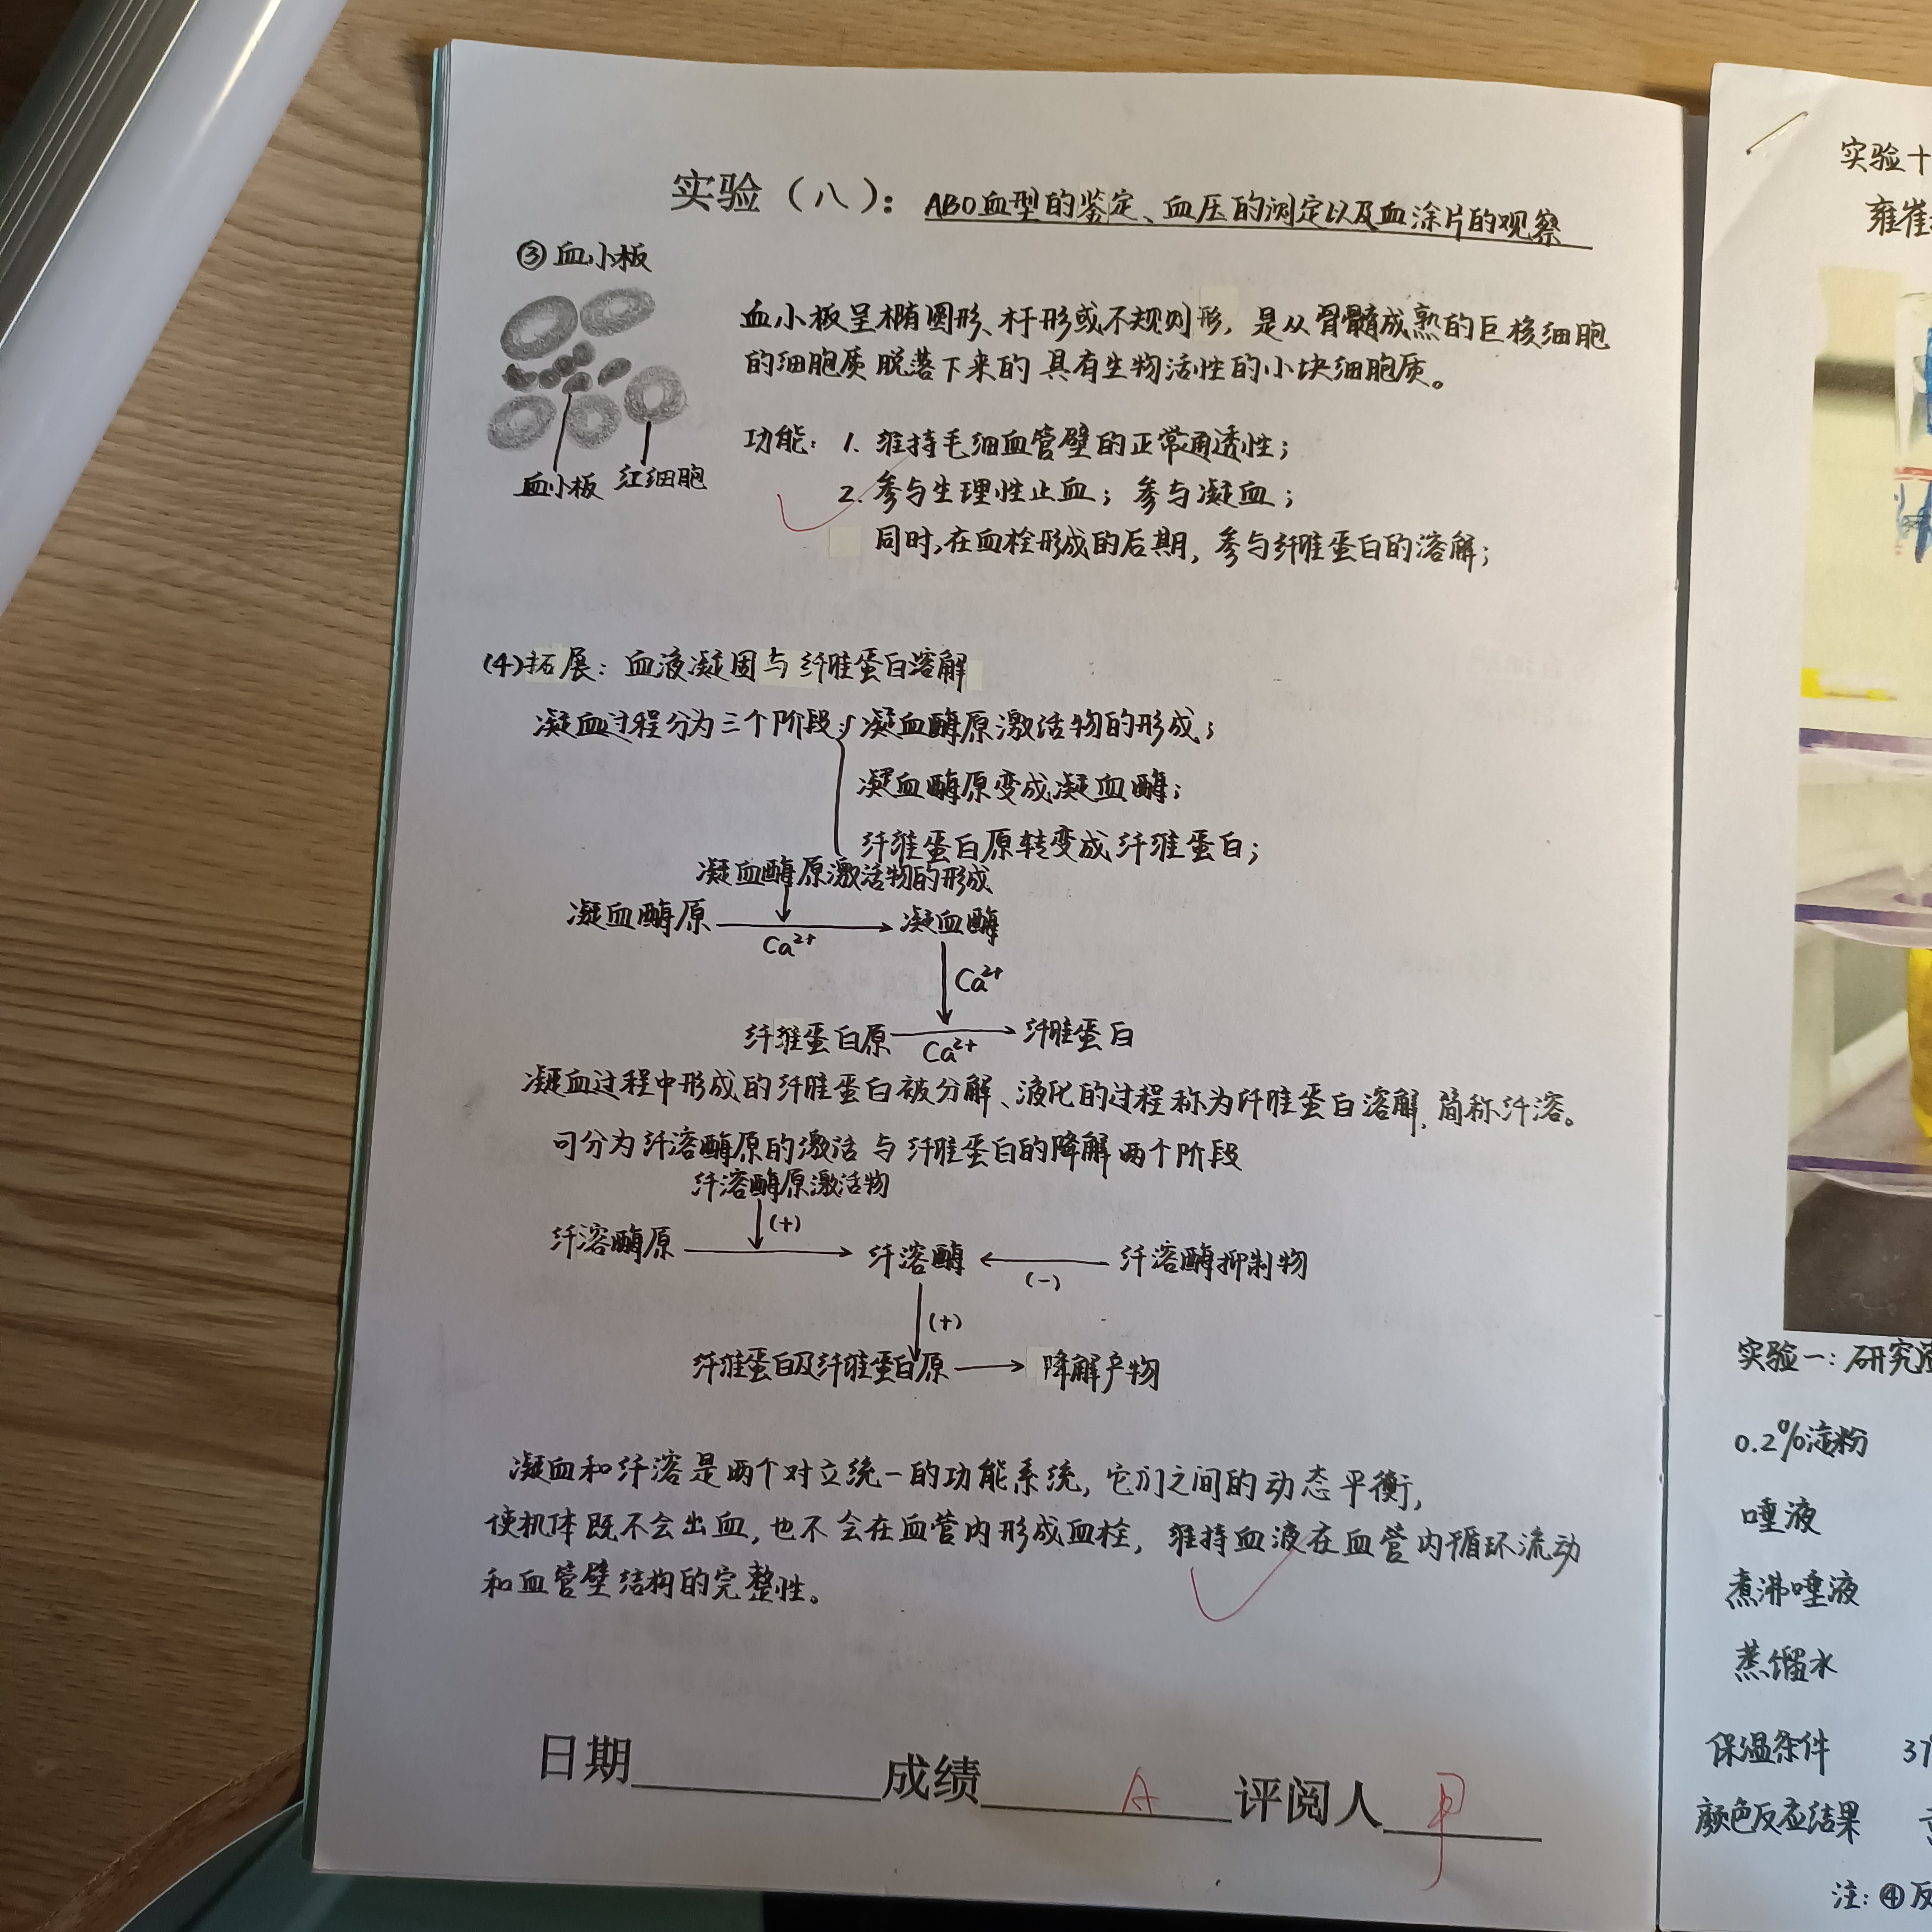 实验（八）：ABO血型的鉴定、血压的测定以及血涂片的观察
③ 血小板
血小板呈椭圆形、杆形或不规则形，是从骨髓成熟的巨核细胞
的细胞质脱落下来的具有生物活性的小块细胞质。
功能：1. 维持毛细血管壁的正常通透性；
2. 参与生理性止血；参与凝血；
同时，在血栓形成的后期，参与纤维蛋白的溶解；
血小板 红细胞
(4)拓展：血液凝固与纤维蛋白溶解
凝血过程分为三个阶段 凝血酶原激活物的形成；
凝血酶原变成凝血酶；
纤维蛋白原转变成纤维蛋白；
凝血酶原激活物的形成
凝血酶原 → 凝血酶
Ca²⁺
Ca²⁺
纤维蛋白原 → 纤维蛋白
Ca²⁺
凝血过程中形成的纤维蛋白被分解、液化的过程称为纤维蛋白溶解，简称纤溶。
可分为纤溶酶原的激活与纤维蛋白的降解两个阶段
纤溶酶原激活物
(+)
纤溶酶原 → 纤溶酶 ← 纤溶酶抑制物
(-)
(+)
纤维蛋白及纤维蛋白原 → 降解产物
凝血和纤溶是两个对立统一的功能系统，它们之间的动态平衡，
使机体既不会出血，也不会在血管内形成血栓，维持血液在血管内循环流动
和血管壁结构的完整性。
日期 成绩 A 评阅人
实验十
雍崔
实验一：研究
0.2%淀粉
唾液
煮沸唾液
蒸馏水
保温条件 37
颜色反应结果
注：④反